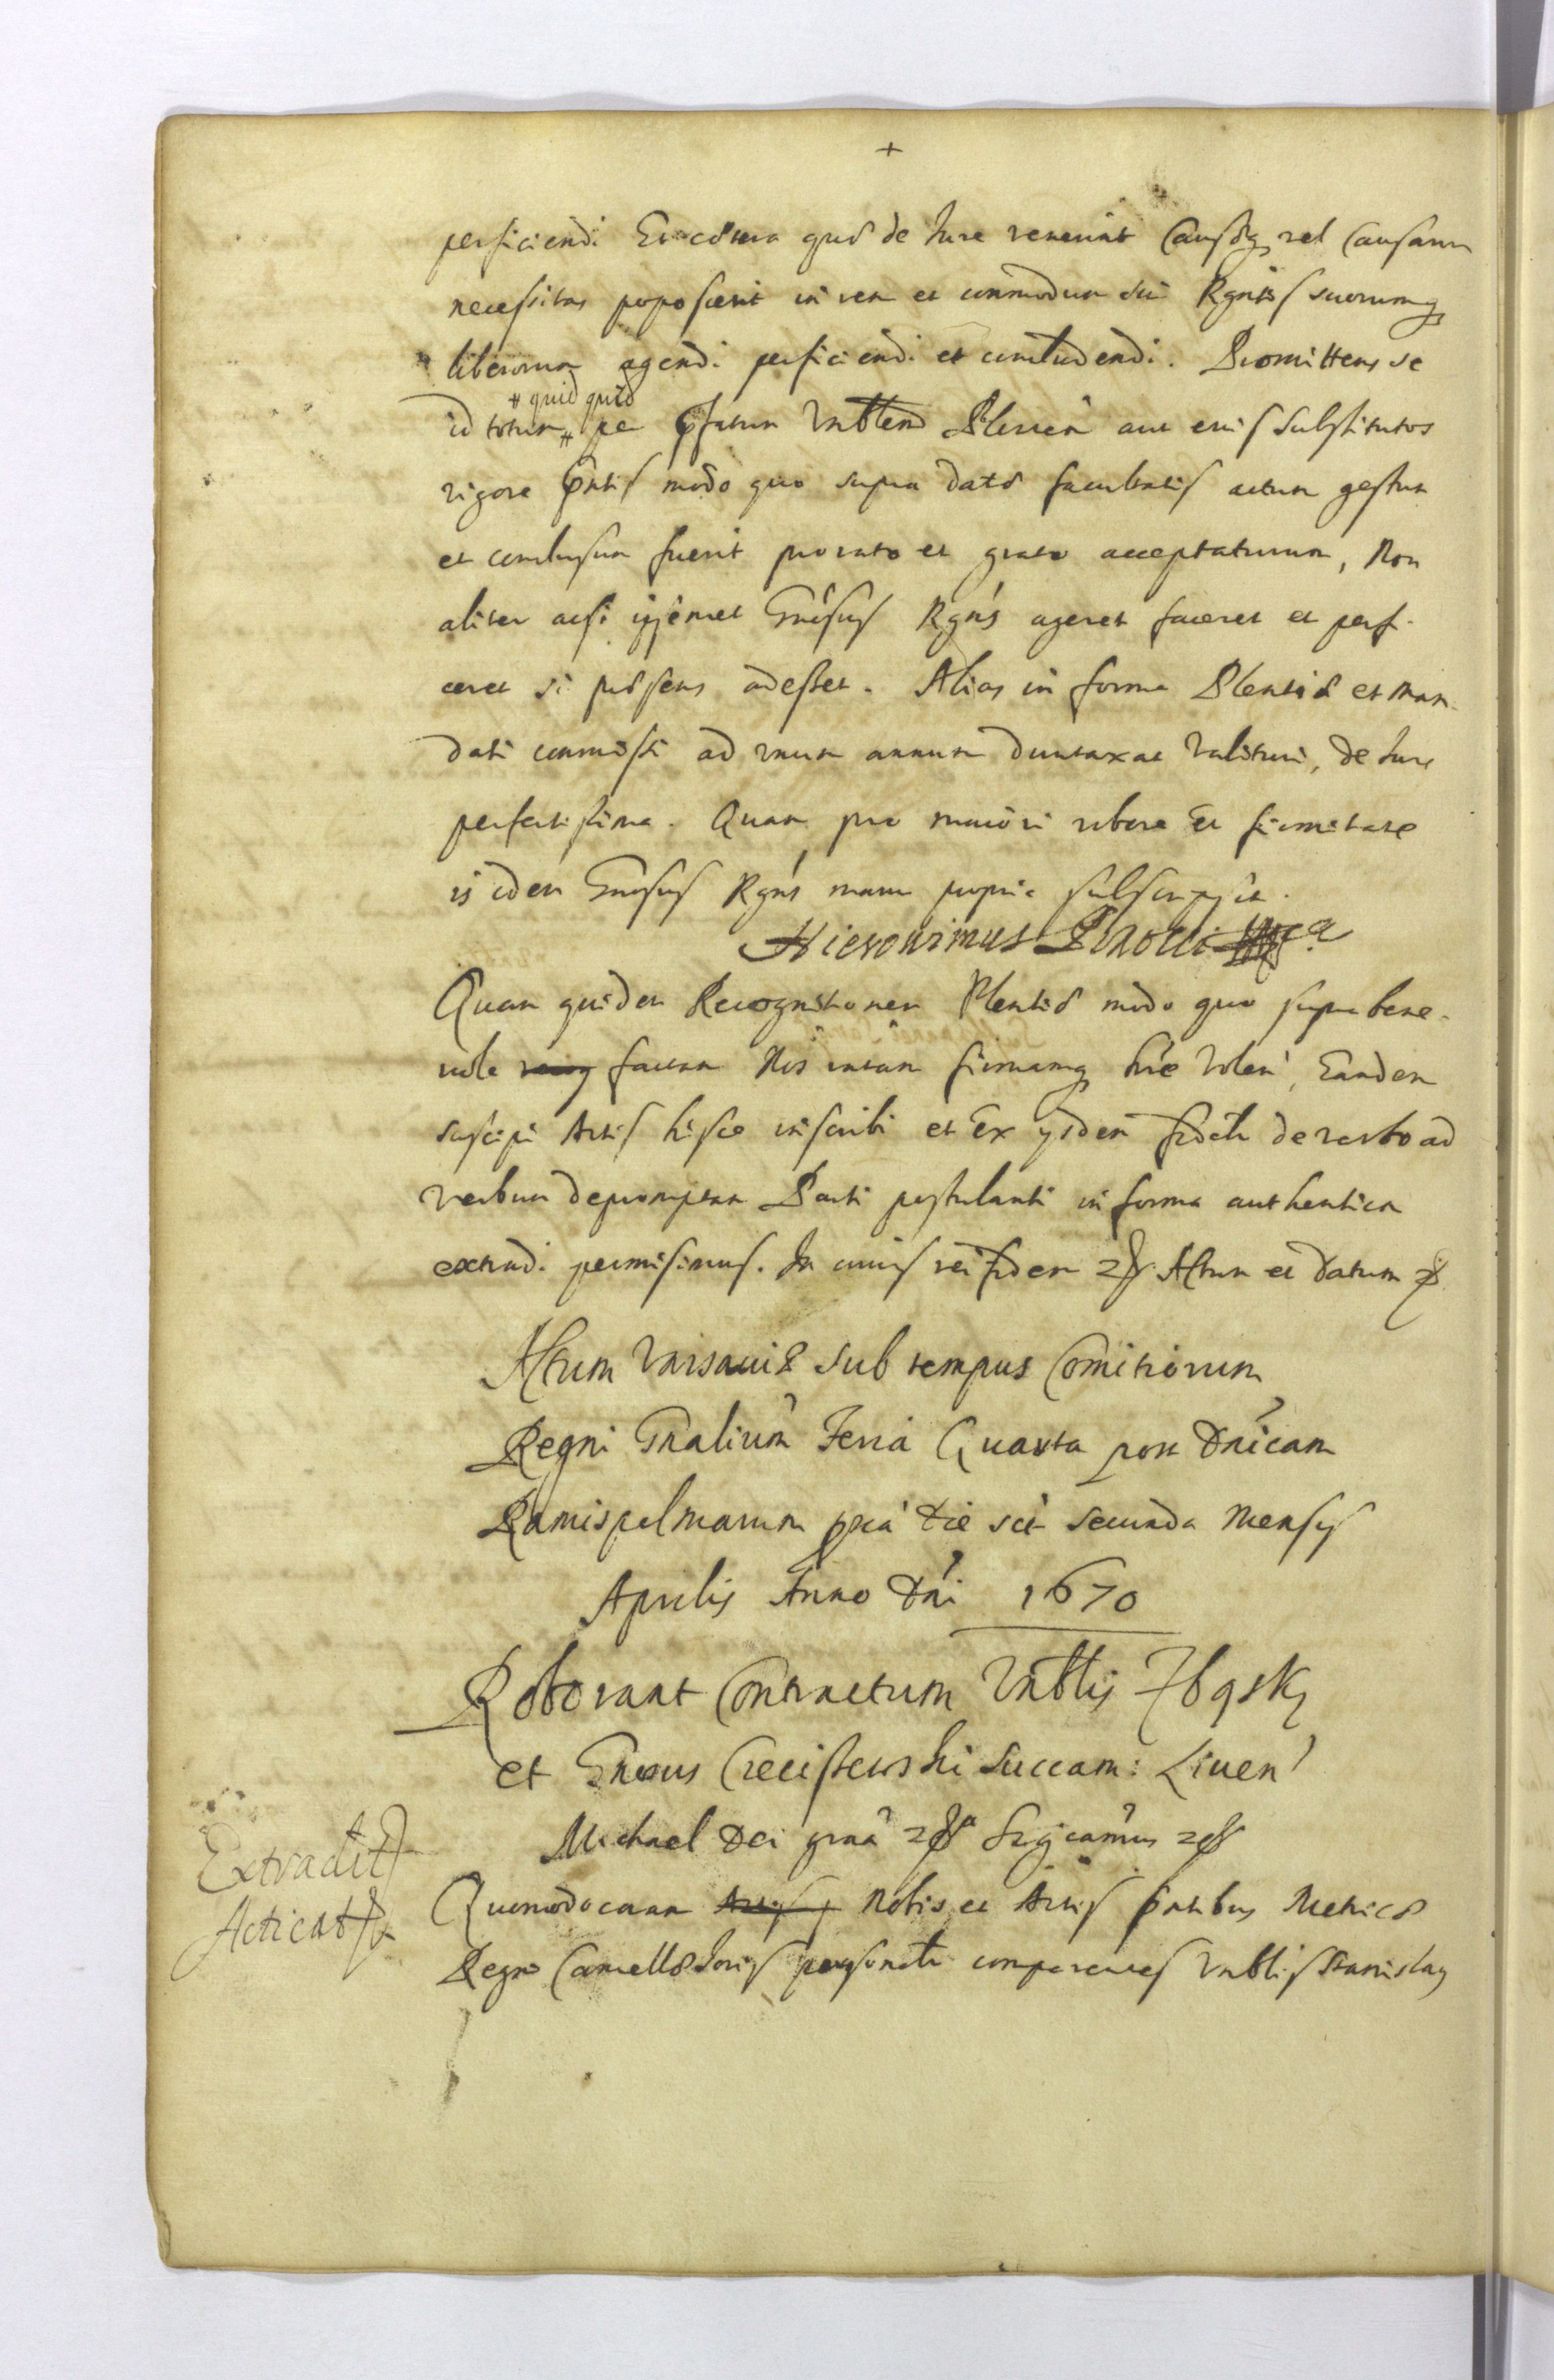 +
perficiendi Et cætera quæ de Jure venerint Causæq vel Causarum
necessitas poposcerit in rem et commodum sui Rgntis suorumq
liberorum agendi perficiendi et concludendi. Promittens se
# quid quid
id totum # per pfatum Vrblem Plenien aut eius substitutos
rigore pntis modo quo supra datæ facultatis actum gestum
et conclusum fuerit pro rato et grato acceptaturum, Non
aliter acsi ipsemet Gnesus Rgns ageret faceret et perfi-
ceret si præsens adesset. Alias in forma Plentiæ et man-
dati commissi ad unum annum duntaxat valituri, de Jure
perfectissima. Quam pro maiori robore Et firmitate
is idem Gnesus Rgns manu propria subscripsit.
Hieronimus Pinocci
Quam quidem Recognitionem Plentiæ modo quo supra bene-
vole factam Nos ratam firmamq hre volen, Eandem
suscipi Actis hisce inscribi et Ex ysdem fidelr de verbo ad
verbum depromptam Parti postulanti in forma authentica
extradi permisimus. In cuius rei fidem Actum et datum
Actum Varsaviæ sub tempus Comitiorum
Regni Gnalium Feria Quarta post Dnicam
Ramispalmarum pxia die sct secunda Mensis
Aprilis Anno Dni 1670
Roborant Contractum Vrblis Zbąski
et Gnosus Succam: Liven
Michael Dei graa Sigcamus
Quomodo coram Nobis et Actis pntibus Metricæ
Regni Cancellæ Joris personalr comparentes Vrblis Stanislaus
Extradit
Acticat